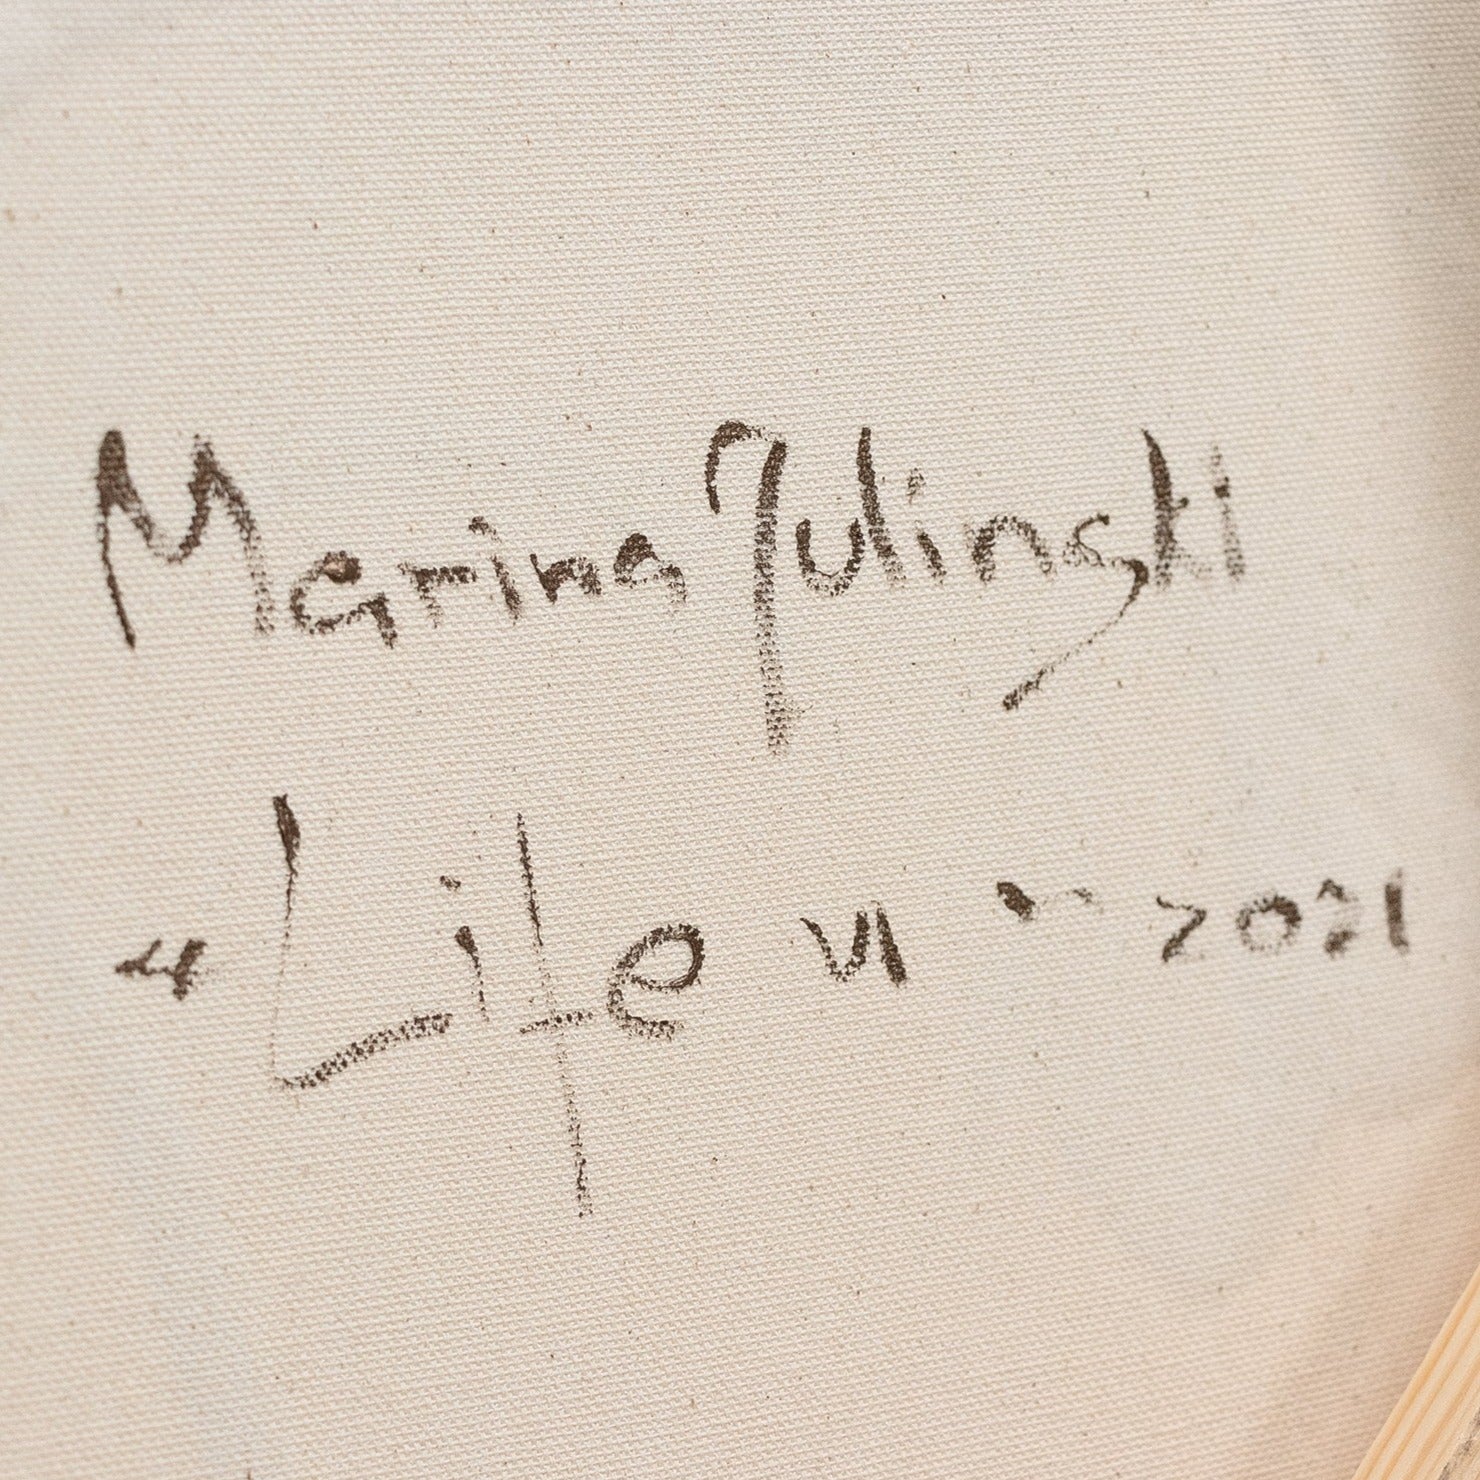 Marina Julinski
"Life VI" 2021